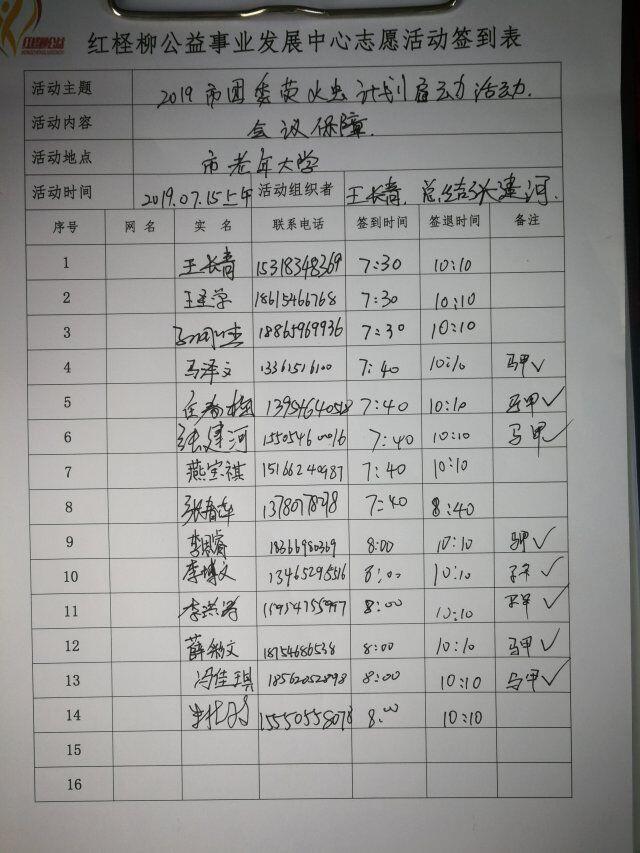 红柽柳公益事业发展中心志愿活动签到表
活动主题 2019市团委萤火虫计划启动活动.
活动内容 会议保障.
活动地点 市老年大学
活动时间 2019.07.15上午 活动组织者 王长青. 总结张建河.
序号 网名 实名 联系电话 签到时间 签退时间 备注
1 王长青 15318348369 7:30 10:10
2 18615466768 7:30 10:10
3 18865969936 7:30 10:10
4 马泽文 13361516100 7:40 10:10 马甲✓
5 7:40 10:10 马甲✓
6 张建河 15505460016 7:40 10:10 马甲✓
7 燕宝祺 15166240987 7:40 10:10
8 张春华 7:40 8:40
9 李恩睿 18366980369 8:00 10:10 马甲✓
10 李博文 13465295516 8:00 10:10 ✓
11 15954755997 8:00 10:10 ✓
12 薛敏文 18754686538 8:00 10:10 马甲✓
13 冯佳琪 18562052898 8:00 10:10 马甲✓
14 15550558078 8:00 10:10
15
16